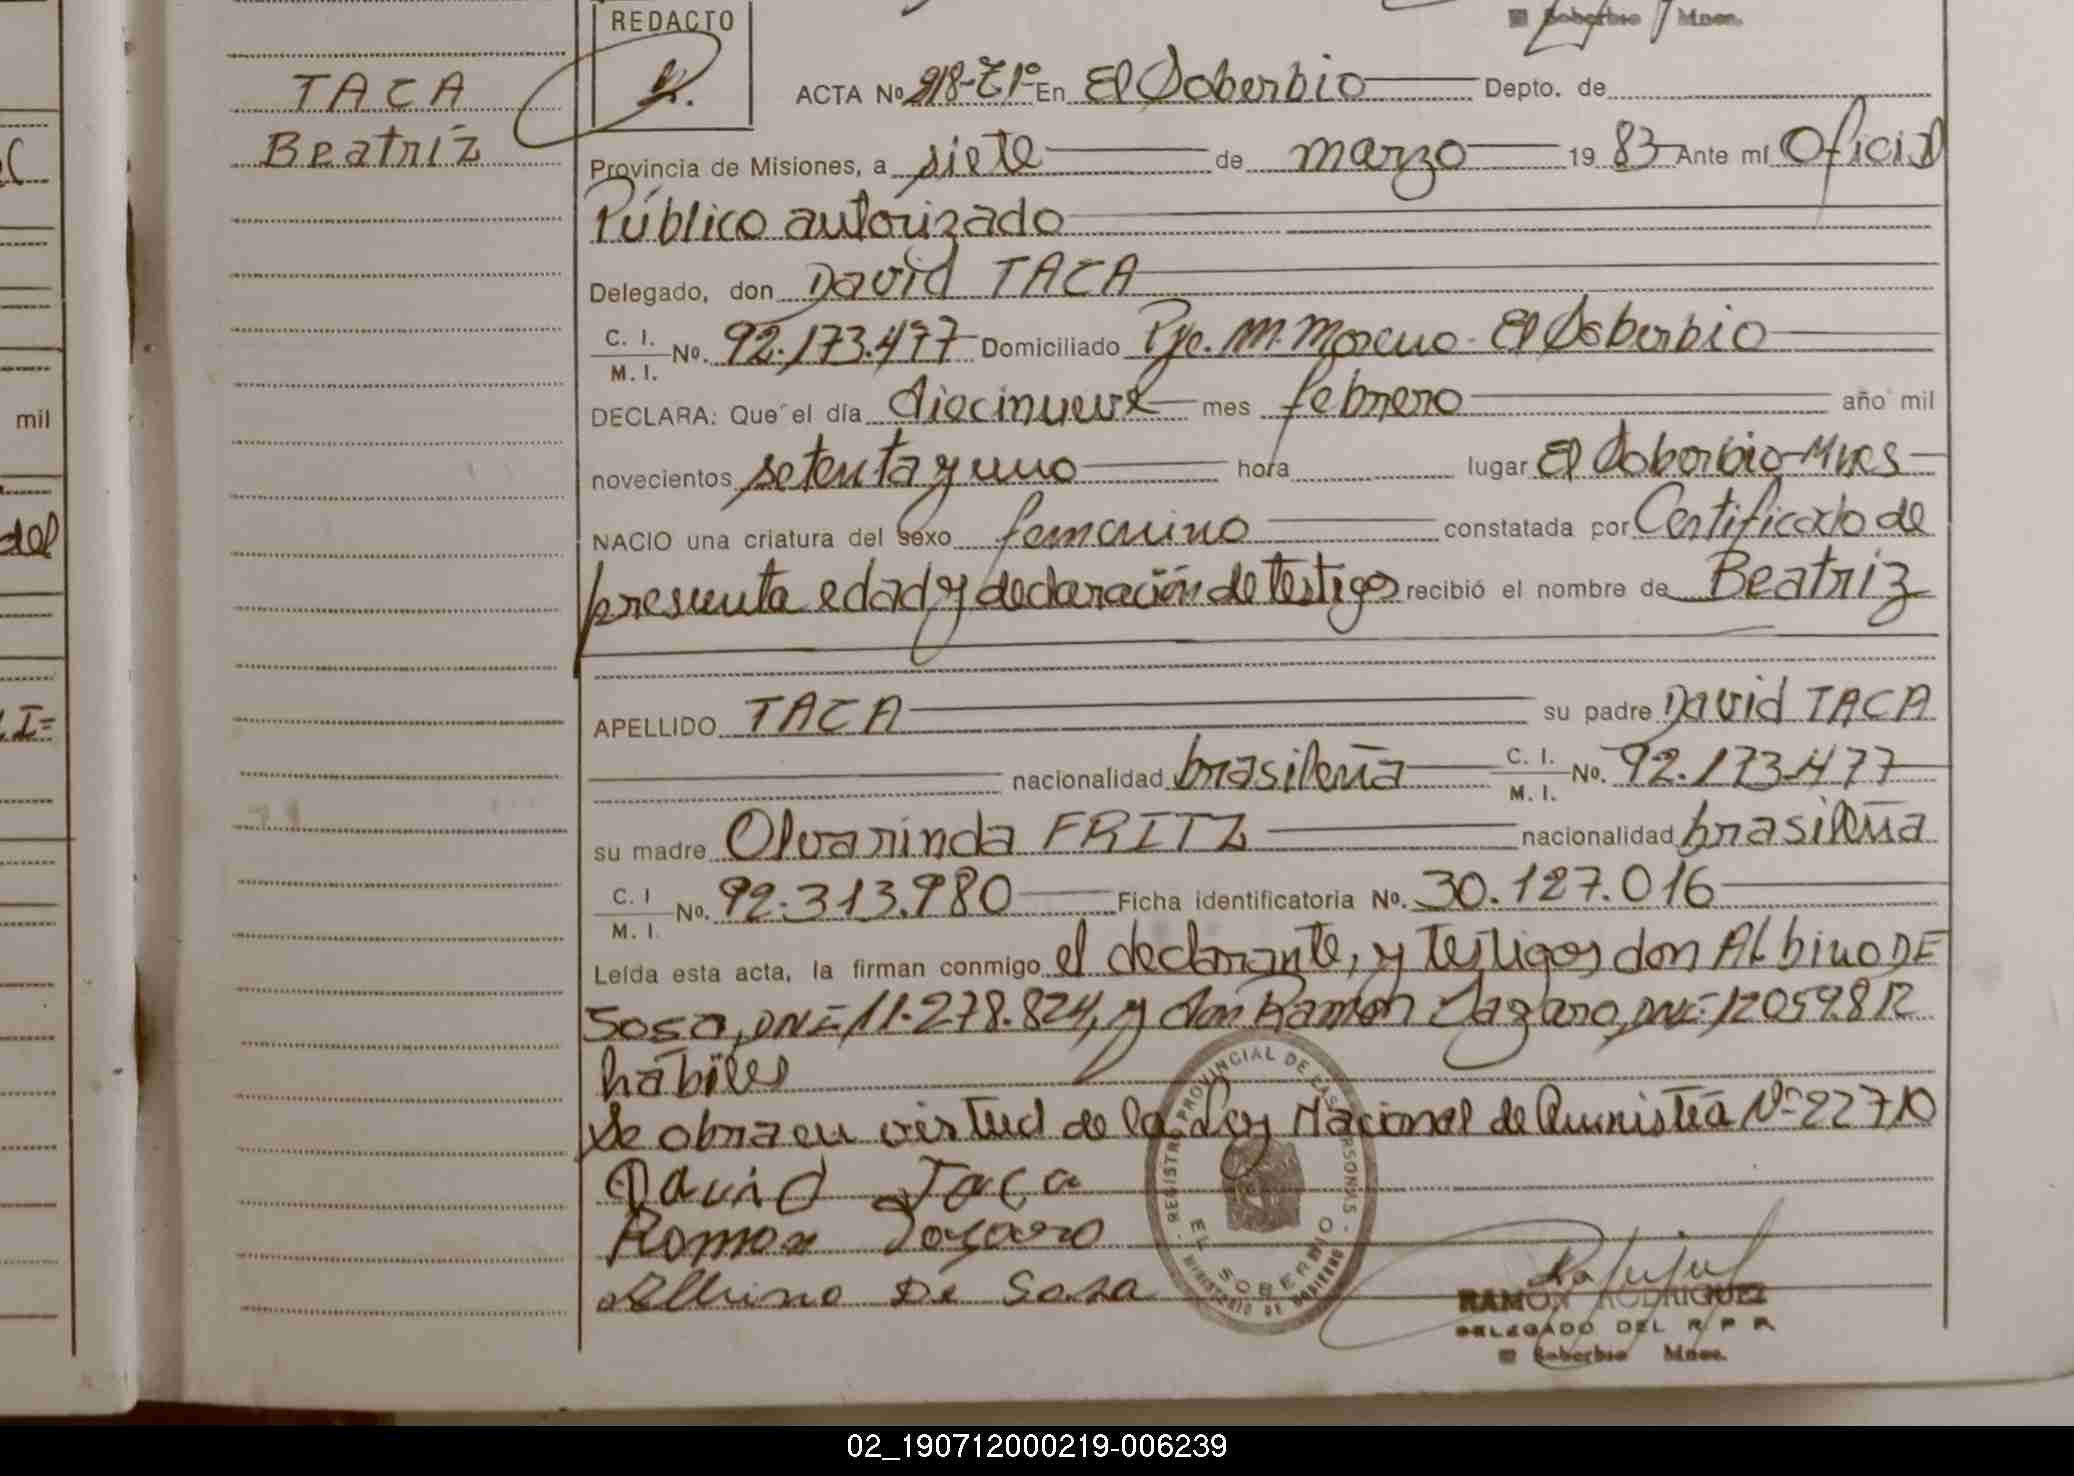 REDACTO
Soberbio Mnes.
TACA
Beatriz
ACTA No 918-T1º En El Soberbio Depto. de
Provincia de Misiones, a siete de marzo 1983 Ante mí Oficial
Público autorizado
Delegado, don David TACA
C. I.
M. I. No. 92.173.477 Domiciliado Pje. M. Moreno - El Soberbio
DECLARA: Que el día diecinueve mes febrero año mil
novecientos setenta y uno hora lugar El Soberbio - Mnes
NACIO una criatura del sexo femenino constatada por Certificado de
presunta edad y declaración de testigos recibió el nombre de Beatriz
APELLIDO TACA su padre David TACA
nacionalidad brasileña C. I.
M. I. No. 92.173.477
su madre Olvarinda FRITZ nacionalidad brasileña
C. I
M. I. No. 92.313.980 Ficha identificatoria No. 30.127.016
Leída esta acta, la firman conmigo el declarante, y testigos don Albino DE
Sosa, DNI= 11.278.824, y don Ramón Lazaro, DNI= 12059.812
hábiles
Se obra en virtud de la Ley Nacional de Amnistía Nº 22710
David Taca
Ramon Lazaro
Albino De Sosa
REGISTRO PROVINCIAL DE LAS PERSONAS
EL SOBERBIO
MINISTERIO DE GOBIERNO
RAMON RODRIGUEZ
DELEGADO DEL R P P
El Soberbio Mnes.
mil
del
02_190712000219-006239